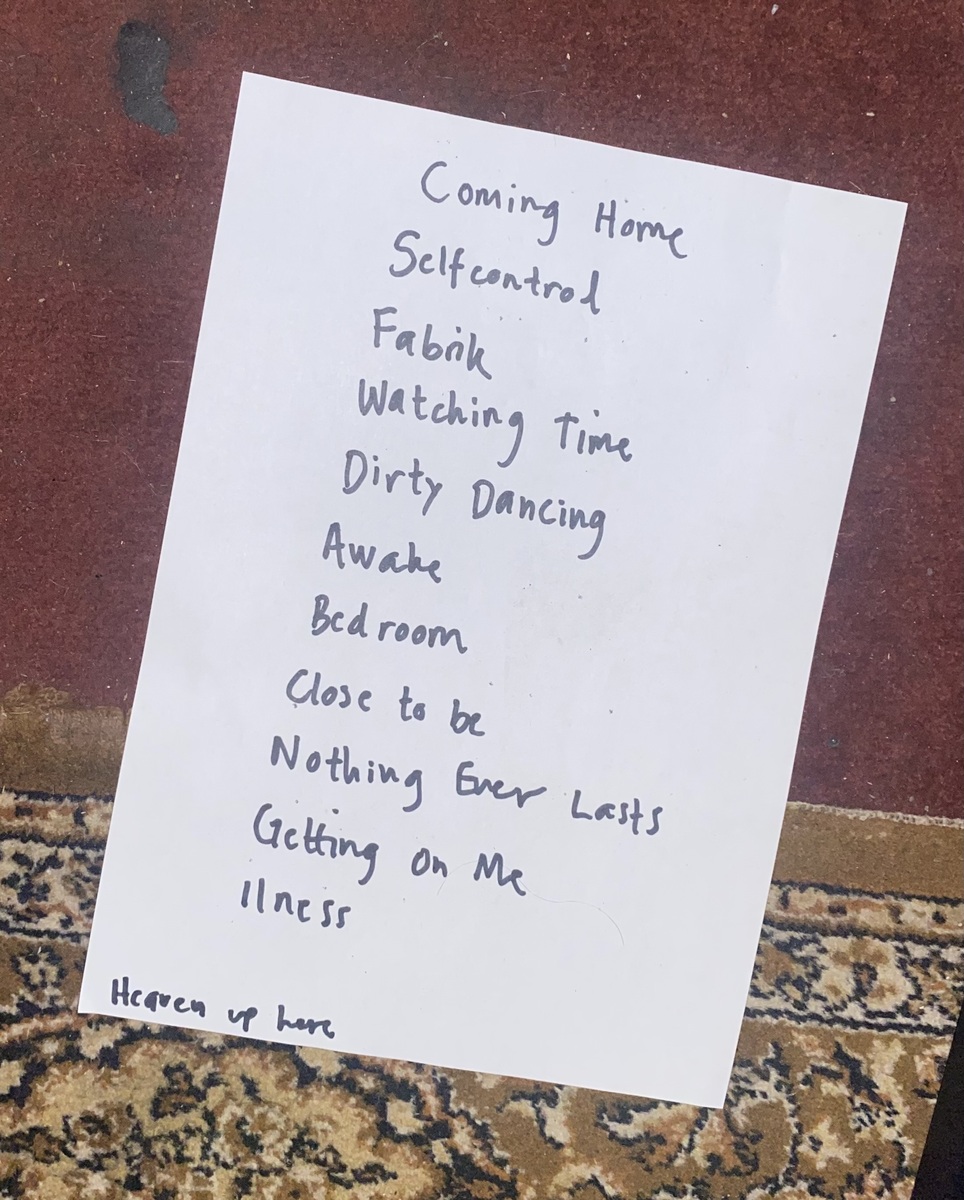 Coming Home
Selfcontrol
Fabrik
Watching Time
Dirty Dancing
Awake
Bedroom
Close to be
Nothing Ever Lasts
Getting On Me
Ilness
Heaven up here